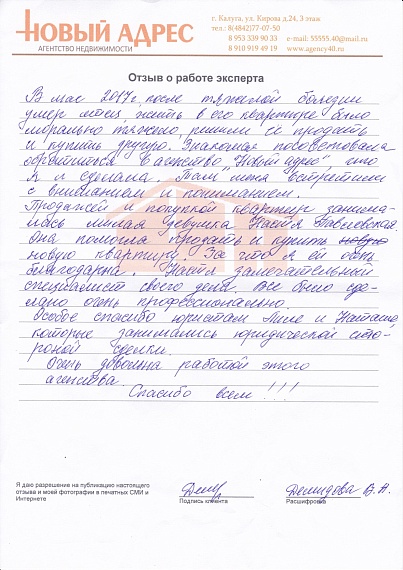 НОВЫЙ АДРЕС
АГЕНТСТВО НЕДВИЖИМОСТИ
г. Калуга, ул. Кирова д.24, 3 этаж
тел.:8(4842)77-07-50
8 953 339 90 33 e-mail: 55555.40@mail.ru
8 910 919 49 19 www.agency40.ru
Отзыв о работе эксперта
В мае 2017г. после тяжелой болезни
умер отец, жить в его квартире было
морально тяжело, решили её продать
и купить другую. Знакомая посоветовала
обратиться в агенство "Новый адрес", что
я и сделала. Там меня встретили
с вниманием и пониманием.
Продажей и покупкой квартир занима-
лась милая девушка Настя Павловская.
Она помогла продать и купить новую
новую квартиру. За что я ей очень
благодарна. Настя замечательный
специалист своего дела. Все было сде-
лано очень профессионально.
Особое спасибо юристам Лине и Наташе,
которые занимались юридической сто-
роной сделки.
Очень довольна работой этого
агенства.
Спасибо всем!!!
Я даю разрешение на публикацию настоящего
отзыва и моей фотографии в печатных СМИ и
Интернете
Подпись клиента
Демидова В.А.
Расшифровка